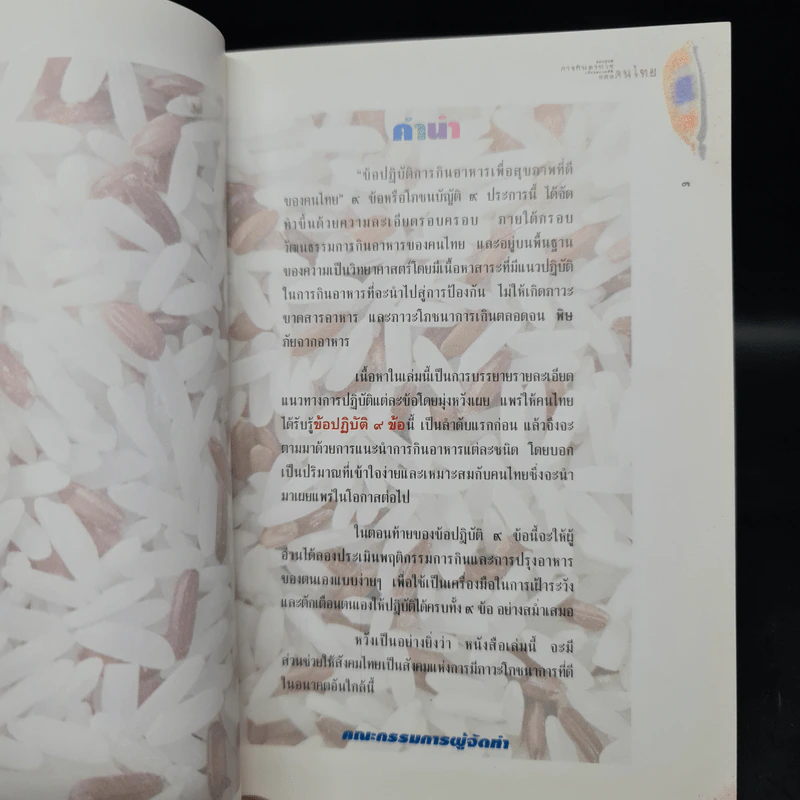 คนไทย
๓
คำนำ
"ข้อปฏิบัติการกินอาหารเพื่อสุขภาพที่ดี
ของคนไทย" ๙ ข้อหรือโภชนบัญญัติ ๙ ประการนี้ ได้จัด
ทำขึ้นด้วยความละเอียดรอบครอบ ภายใต้กรอบ
วัฒนธรรมการกินอาหารของคนไทย และอยู่บนพื้นฐาน
ของความเป็นวิทยาศาสตร์โดยมีเนื้อหาสาระที่มีแนวปฏิบัติ
ในการกินอาหารที่จะนำไปสู่การป้องกัน ไม่ให้เกิดภาวะ
ขาดสารอาหาร และภาวะโภชนาการเกินตลอดจน พิษ
ภัยจากอาหาร
เนื้อหาในเล่มนี้เป็นการบรรยายรายละเอียด
แนวทางการปฏิบัติแต่ละข้อโดยมุ่งหวังเผย แพร่ให้คนไทย
ได้รับรู้ข้อปฏิบัติ ๙ ข้อนี้ เป็นลำดับแรกก่อน แล้วถึงจะ
ตามมาด้วยการแนะนำการกินอาหารแต่ละชนิด โดยบอก
เป็นปริมาณที่เข้าใจง่ายและเหมาะสมกับคนไทยซึ่งจะนำ
มาเผยแพร่ในโอกาสต่อไป
ในตอนท้ายของข้อปฏิบัติ ๙ ข้อนี้จะให้ผู้
อ่านได้ลองประเมินพฤติกรรมการกินและการปรุงอาหาร
ของตนเองแบบง่ายๆ เพื่อใช้เป็นเครื่องมือในการเฝ้าระวัง
และตักเตือนตนเองให้ปฏิบัติได้ครบทั้ง ๙ ข้อ อย่างสม่ำเสมอ
หวังเป็นอย่างยิ่งว่า หนังสือเล่มนี้ จะมี
ส่วนช่วยให้สังคมไทยเป็นสังคมแห่งการมีภาวะโภชนาการที่ดี
ในอนาคตอันใกล้นี้
คณะกรรมการผู้จัดทำ